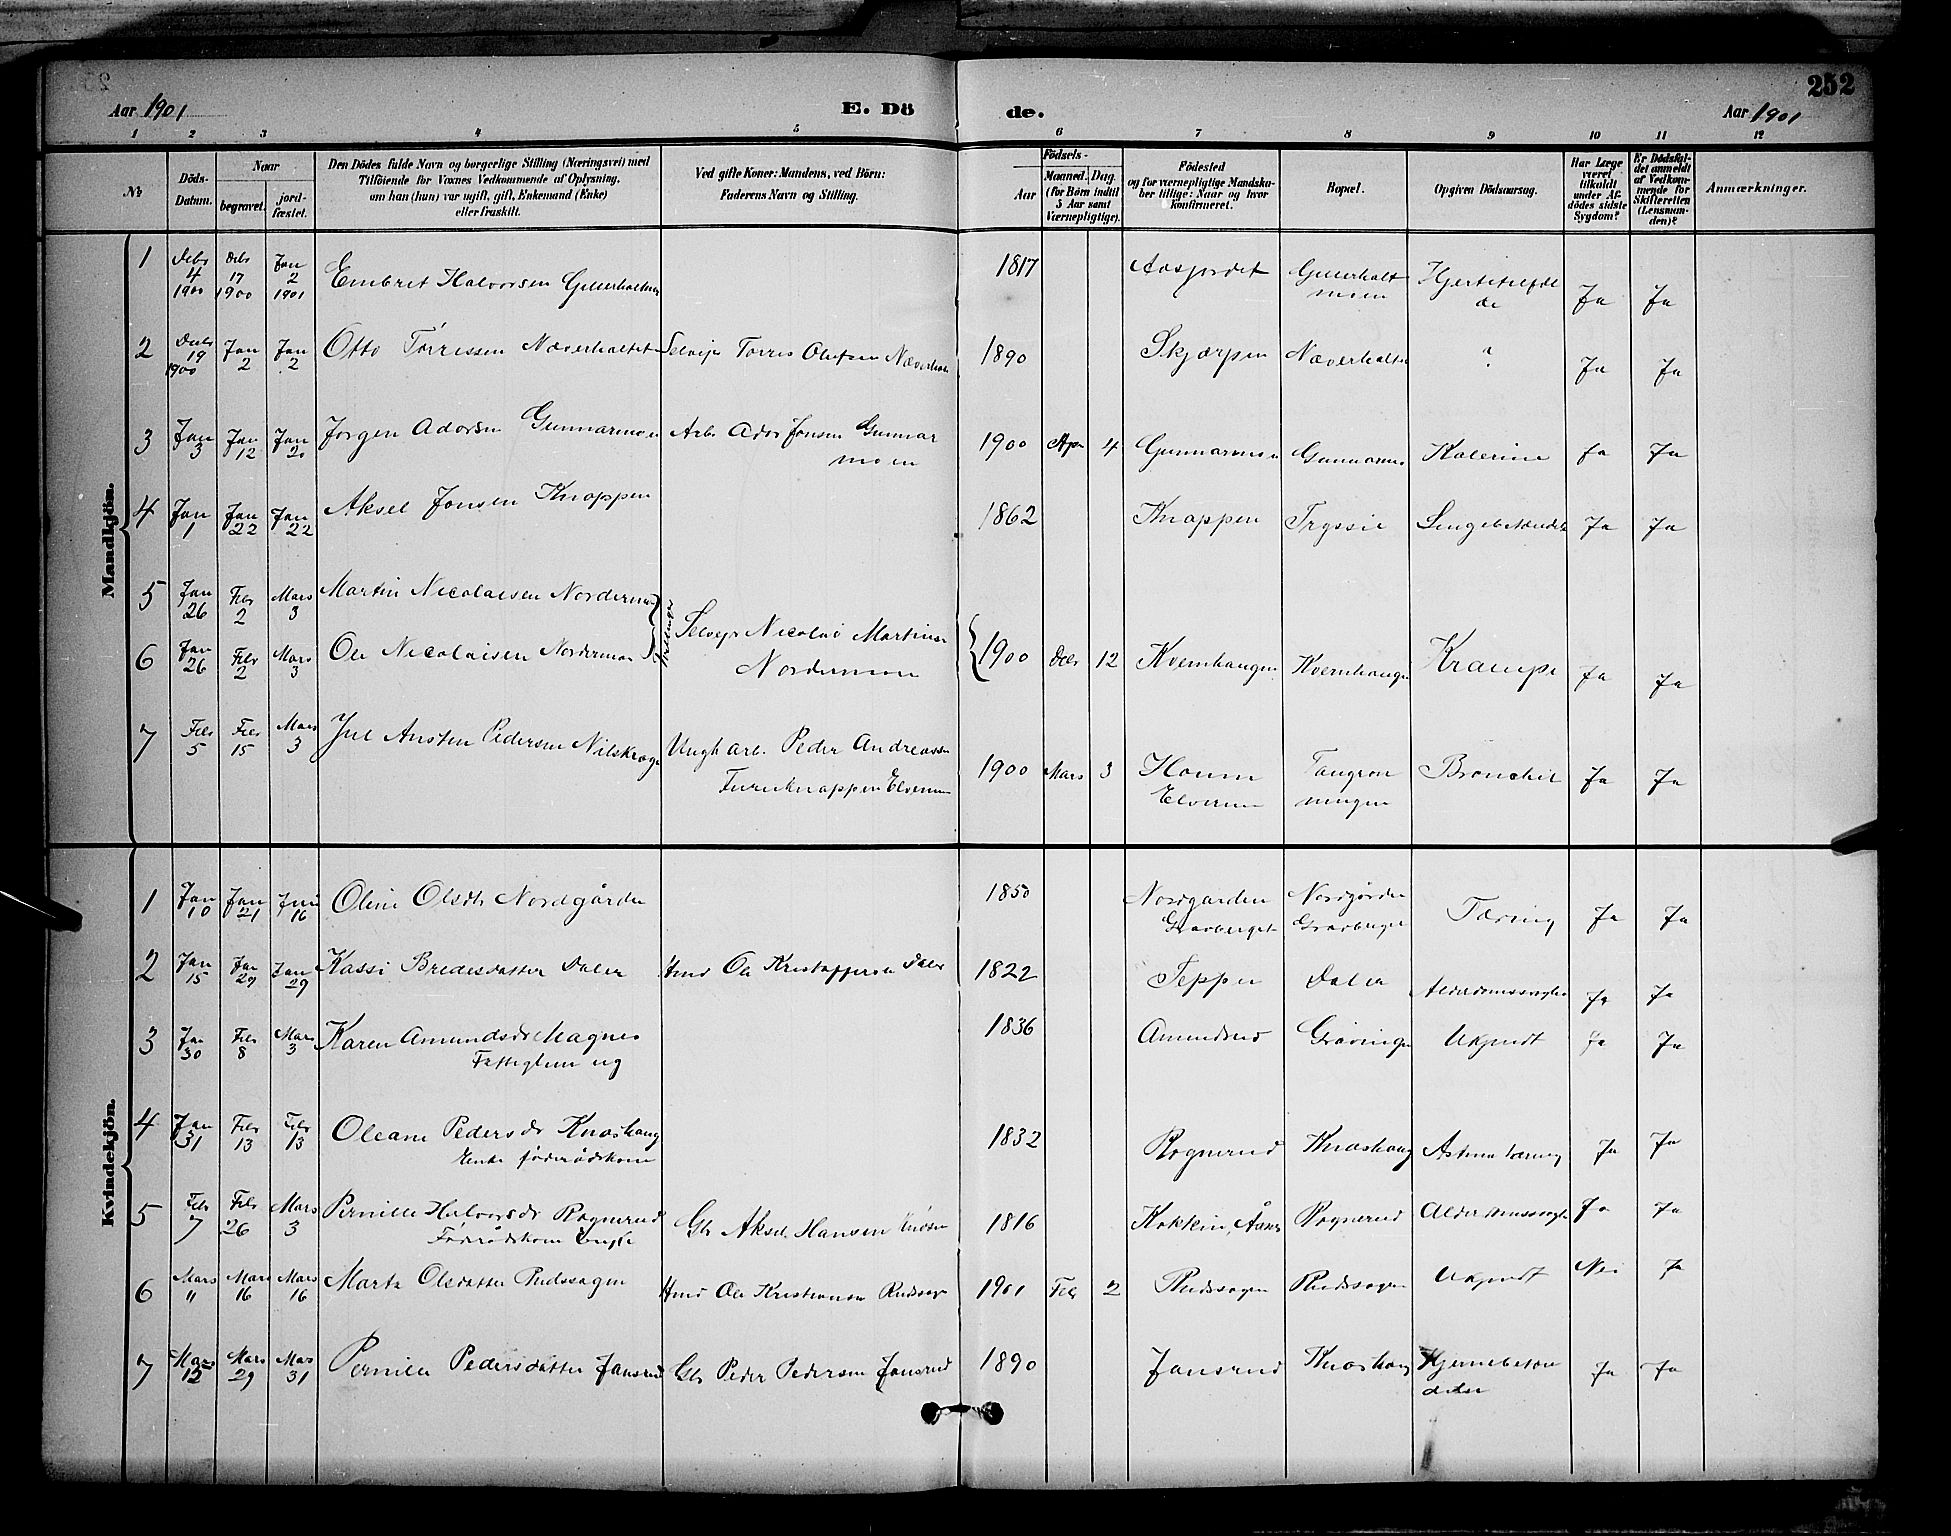 252
Aar 1901 E. Dö de. Aar 1901
1 2 3 4 5 6 7 8 9 10 11 12
№ Döds-Datum. Naar begravet. jord-fæstet. Den Dödes fulde Navn og borgerlige Stilling (Næringsvei) med Tilföiende for Voxnes Vedkommende af Oplysning, om han (hun) var ugift, gift, Enkemand (Enke) eller fraskilt. Ved gifte Koner: Mandens, ved Börn: Faderens Navn og Stilling. Födsels- Aar Maaned. Dag. (for Börn indtil 5 Aar samt Værnepligtige). Födested og for værnepligtige Mandska-ber tillige: Naar og hvor konfirmeret. Bopæl. Opgiven Dödsaarsag. Har Læge været tilkaldt under Af-dödes sidste Sygdom? Er Dödsfal-det anmeldt af Vedkom-mende for Skifteretten (Lensman-den)? Anmærkninger.
Mandkjön.
1 Debr 4 1900 Debr 17 1900 Jan 2 1901 Embret Halvorsen 1817 Aasjordet moen Ja Ja
2 Debr 19 1900 Jan 2 Jan 2 Otto Törrissen Næverholtet Selvejr Torris Olufsen 1890 Skjærpen Næverholtet " Ja Ja
3 Jan 3 Jan 12 Jan 20 Jorgen Adorsen Gunnarmoen Arbr Ador Jonsen Gunnar
moen 1900 Apr 4 Gunnarmoen Gunnarmo Ja Ja
4 Jan 1 Jan 22 Jan 22 Aksel Jonsen Knappen 1862 Knappen Trysil Ja Ja
5 Jan 26 Febr 2 Mars 3 Martin Nicolaisen Nordermoen
6 Jan 26 Febr 2 Mars 3 Ole Nicolaisen Nordermoen Tvillinger Selvejr Nicolai Martinsen
Nordermoen 1900 Debr 12 Kvernhaugen Kvernhaugen Krampe Ja Ja
7 Febr 5 Febr 15 Mars 3 Jul Austen Pedersen Nilskroge Ungk arb. Peder Andreassen
Furuknappen Elverum 1900 Mars 3 Elverum Bronchit Ja Ja
Kvindekjön.
1 Jan 10 Jan 21 Juni 16 Oline Olsdtr Nordgården 1850 Nordgaarden Graaberget Nordgården Graaberget Tæring Ja Ja
2 Jan 15 Jan 29 Jan 29 Kassi Bredesdatter Dalen Hmd Ole Kristoffersen Dalen 1822 Teppen Dalen Alderdomssvaghed Ja Ja
3 Jan 30 Febr 8 Mars 3 Karen Amundsdr Magnes
Fattiglem ug 1836 Amundrud Ukjendt Ja Ja
4 Jan 31 Febr 13 Febr 13 Oleane Pedersdr Knashaug
Enke föderådskone 1832 Rognerud Knashaug Astma tæring Ja Ja
5 Febr 7 Febr 26 Mars 3 Pernille Halvorsdr Rognerud
Föderådskone Enke Gbr Aksel Hansen 1816 Åsnes Rognerud Alderdomssvaghed Ja Ja
6 Mars 11 Mars 16 Mars 16 Marta Olsdatter Rudssagen Hmd Ole Kristiansen Rudssagen 1901 Febr 2 Rudssagen Rudssagen Ukjendt Nei Ja
7 Mars 12 Mars 29 Mars 31 Pernille Pedersdatter Jansrud Gbr Peder Pedersen Jansrud 1890 Jansrud Knashaug Ja Ja